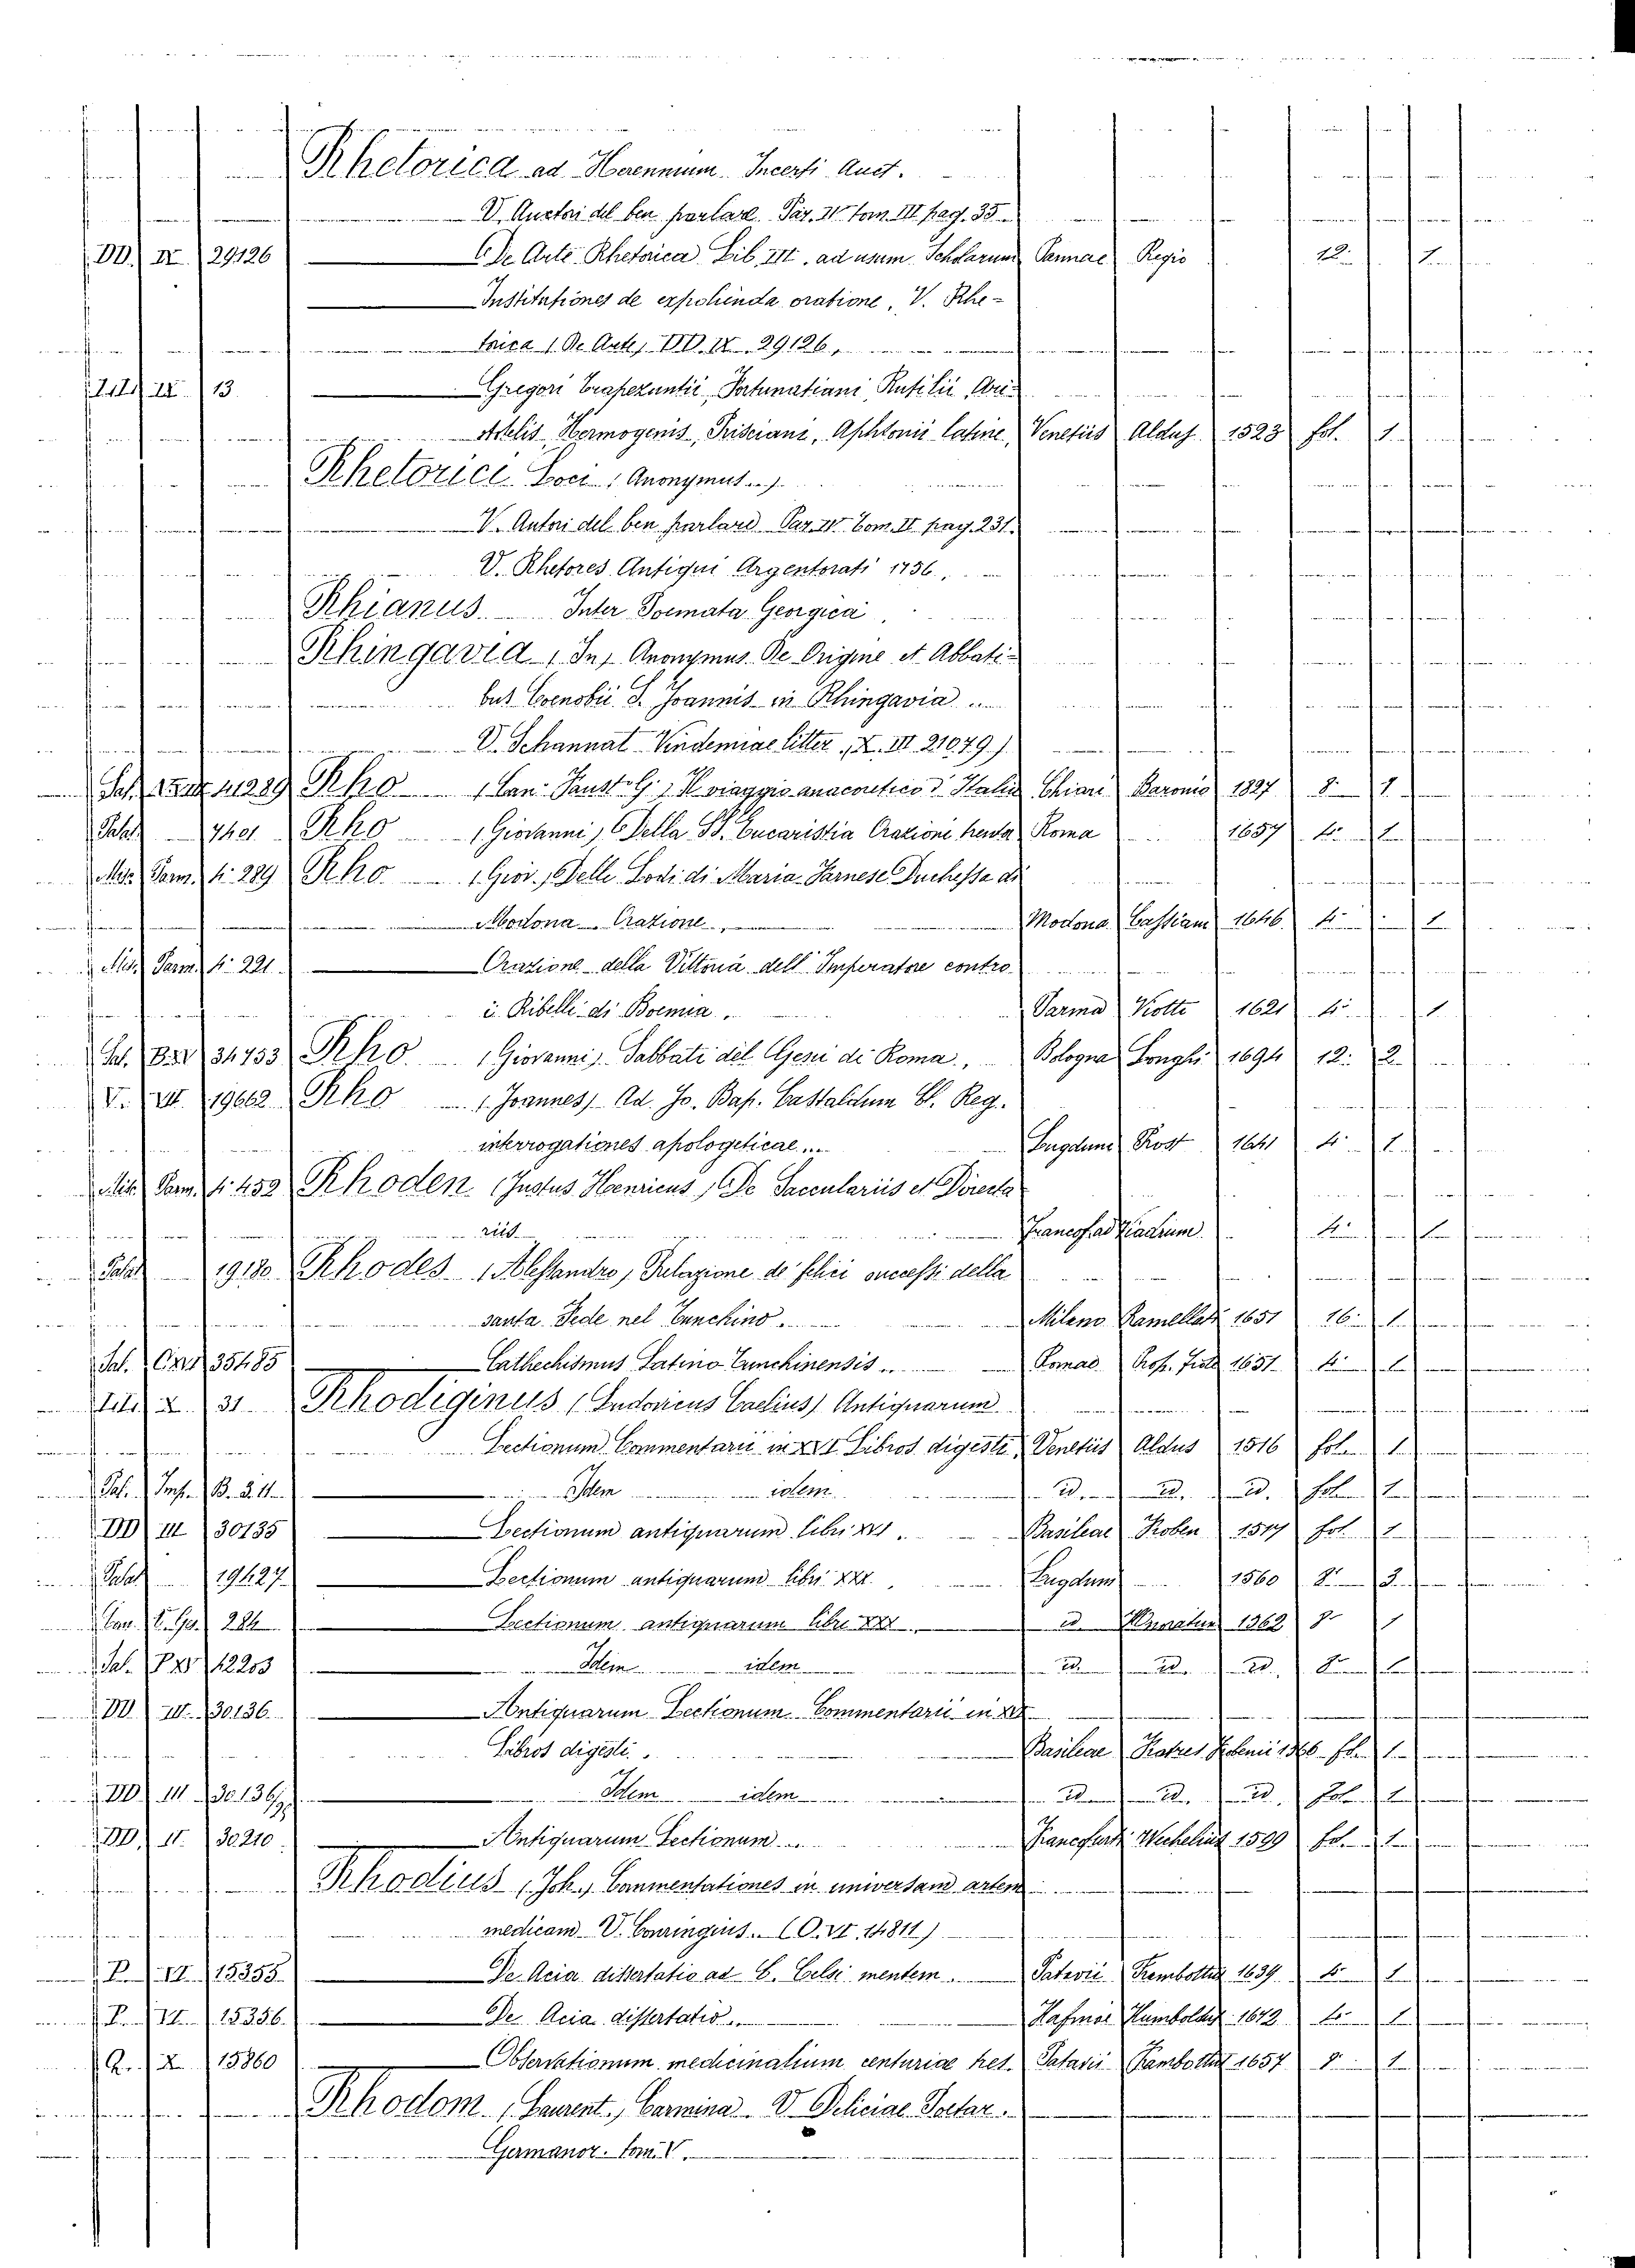 Rhetorica ad Herennium Incerti Auct.
V. Auctori del ben parlare Par. IV tom. III pag. 35
DD. IV 29126 (De Arte Rhetorica Lib. III. ad usum Scholarum Parmae Regio 12. 1
Institutiones de expolienda oratione, V. Rhe-
torica (De Arte) DD. IV. 29126,
13 Gregori Trapezuntii, Fortunatiani, Rutilii, Ari-
stotelis, Hermogenis, Prisciani, Aphtonii latine, Venetiis Aldus 1523 fol. 1
Rhetorici Loci (Anonymus..)
V. Autori del ben parlare Par. IV. tom. II pag. 231.
V. Rhetores Antiqui Argentorati 1736.
Rhianus Inter Poemata Georgica
Rhingavia (In) Anonymus De Origine et Abbati-
bus Coenobii S. Joannis in Rhingavia
V. Schannat Vindemiae litter. (Z. III. 21079)
Sal. 41289 Rho (Can. Faust. G.) Il viaggio anacoretico d' Italia Chiari Baronio 1827 8. 1
Palat. 7401 Rho (Giovanni) Della SS. Eucaristia Orazione Roma 1657 4. 1
Mis. Parm. 4. 289 Rho (Giov.) Delle Lodi di Maria Farnese Duchessa di
Modona Orazione Modona Cassiani 1646 4. 1
Mis. Parm. 4. 221 Orazione della Vittoria dell' Imperatore contro
i Ribelli di Boemia. Parma Viotti 1621 4. 1
Sal. 34733 Rho (Giovanni) Sabbati del Gesù di Roma, Bologna Longhi 1694 12. 2
V. VII. 19662 Rho (Joannes) Ad Jo. Bap. Castaldum Cl. Reg.
interrogationes apologeticae Lugduni Prost 1641 4. 1
Mis. Parm. 4. 452 Rhoden (Justus Henricus) De Saccularis et Directa
riis Francof. ad Viadrum 4. 1
Palat. 19180 Rhodes (Alessandro) Relazione de' felici successi della
santa Fede nel Tunchino Milano Ramellati 1651 16. 1
Sal. 35485 Cathechismus Latino Tunchinensis Romae Prop. Fide 1651 4. 1
X 31 Rhodiginus (Ludovicus Caelius) Antiquarum
Lectionum Commentarii in XVI Libros digesti, Venetiis Aldus 1516 fol. 1
Pal. Imp. B. 2. 11. Idem idem id. id. id. fol. 1
DD III 30135 Lectionum antiquarum libri XVI. Basileae Froben 1517 fol. 1
Palat. 19427 Lectionum antiquarum libri XXX. Lugduni 1560 8. 3.
284 Lectionum antiquarum libri XXX id. Honoratus 1562 8. 1
Sal. 42203 Idem idem id. id. id. 8. 1
DD. III. 30136 Antiquarum Lectionum Commentarii in XXX
Libros digesti. Basileae Fratres Frobenii 1566 fol. 1
DD. III 30136 Idem idem id. id. id. fol. 1
DD. II. 30210 Antiquarum Lectionum Francofurti Wechelius 1599 fol. 1
Rhodius (Joh.) Commentationes in universam artem
medicam V. Conringius. (O. VI. 14811)
P. VI 15355 De Acia dissertatio ad C. Celsi mentem. Patavii Frembottus 1639 4. 1
P. VI. 15356. De Acia dissertatio. Hafniae 1672 4. 1
Q. X 15860 Observationum medicinalium centuriae tres. Patavii Frambottus 1657 8. 1
Rhodom. (Laurent.) Carmina. V. Deliciae Poetar.
Germanor. tom. V.